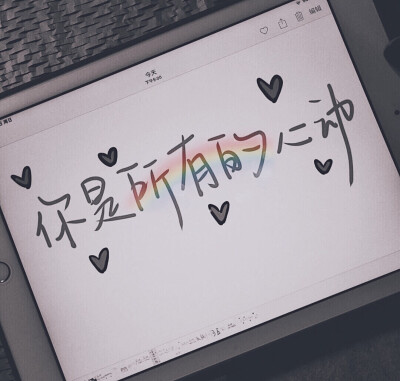 今天
编辑
你是所有的心动